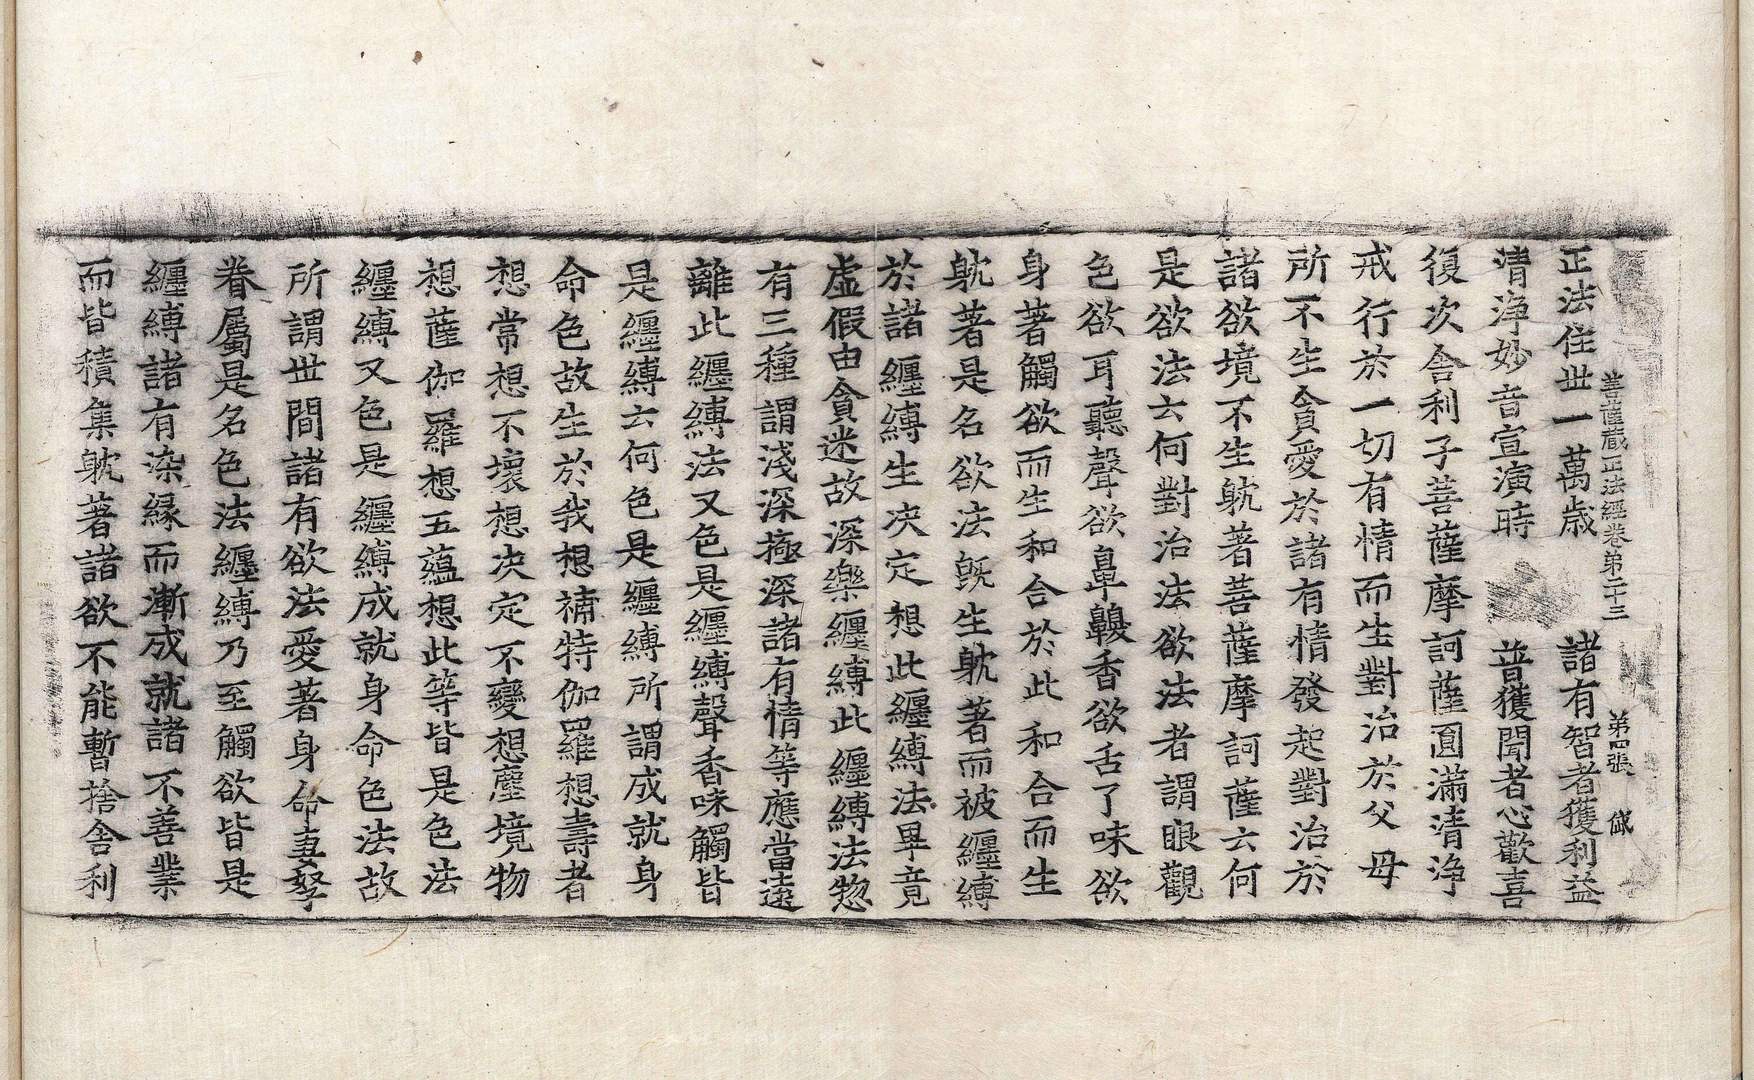 菩薩藏正法經卷第二十三　第四張　帒
正法住世一萬歲　諸有智者獲利益
清淨妙音宣演時　普獲聞者心歡喜
復次舍利子菩薩摩訶薩圓滿清淨
戒行於一切有情而生對治於父母
所不生貪愛於諸有情發起對治於
諸欲境不生躭著菩薩摩訶薩云何
是欲法云何對治法欲法者謂眼觀
色欲耳聽聲欲鼻齅香欲舌了味欲
身著觸欲而生和合於此和合而生
躭著是名欲法旣生躭著而被纏縛
於諸纏縛生决定想此纏縛法畢竟
虛假由貪迷故深樂纏縛此纏縛法惣
有三種謂淺深極深諸有情等應當遠
離此纏縛法又色是纏縛聲香味觸皆
是纏縛云何色是纏縛所謂成就身
命色故生於我想補特伽羅想壽者
想常想不壞想决定不變想塵境物
想薩伽羅想五蘊想此等皆是色法
纏縛又色是纏縛成就身命色法故
所謂世間諸有欲法愛著身命妻孥
眷屬是名色法纏縛乃至觸欲皆是
纏縛諸有染緣而漸成就諸不善業
而皆積集躭著諸欲不能暫捨舍利